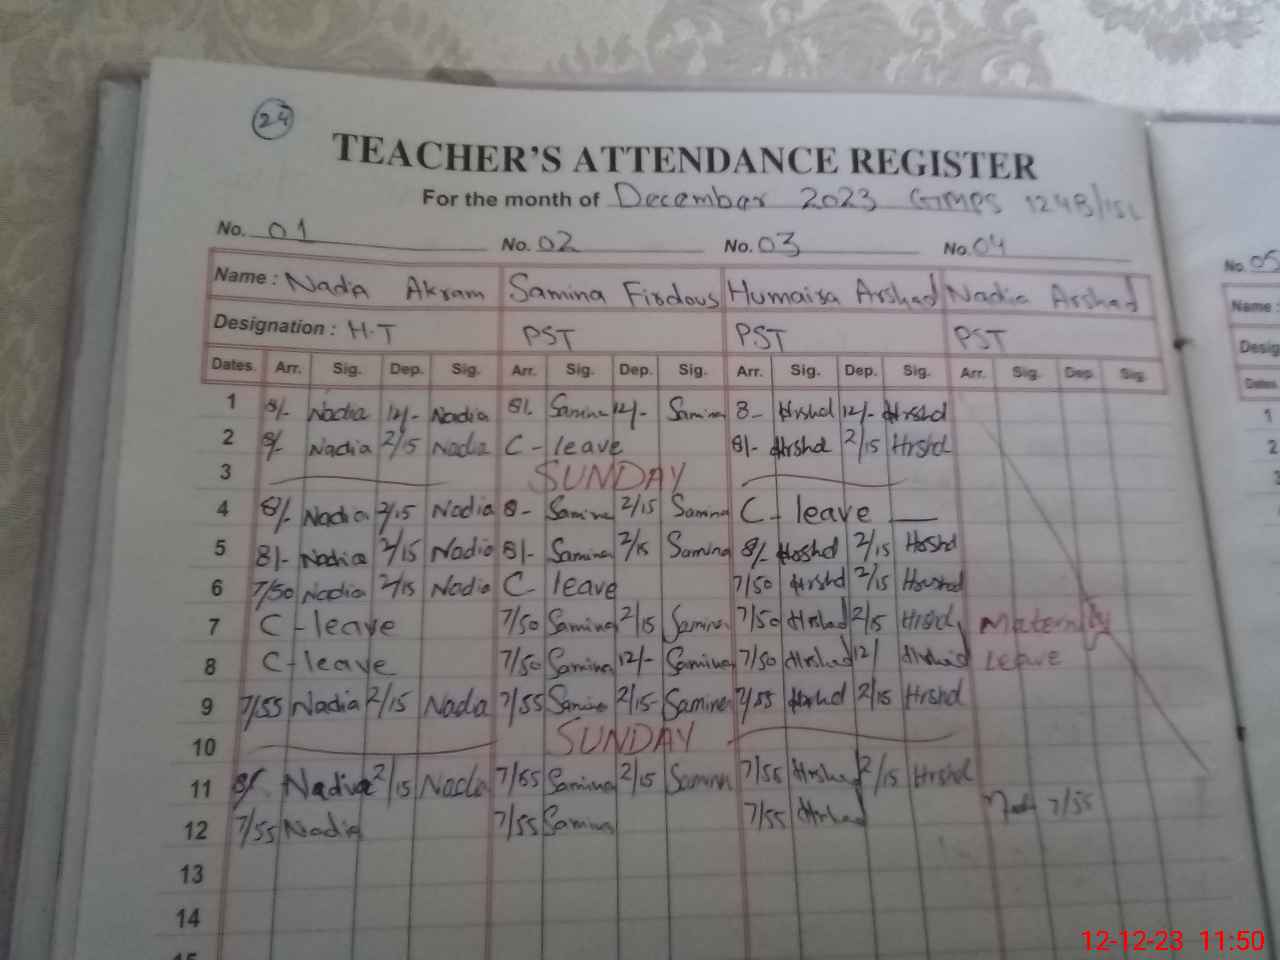 24
TEACHER'S ATTENDANCE REGISTER
For the month of December 2023 GMPS 124B/15L
No. 01 No. 02 No. 03 No. 04 No. 05
Name : Nadia Akram Samina Firdous Humaira Arshad Nadia Arshad Name
Designation : H.T PST PST PST Desig
Dates. Arr. Sig. Dep. Sig. Arr. Sig. Dep. Sig. Arr. Sig. Dep. Sig. Arr. Sig. Dep. Sig. Dates
1 8/- Nadia 12/- Nadia 8/- Samina 12/- Samina 8- Hrshd 12/- Hrshd 1
2 8/- Nadia 2/15 Nadia C-leave 8/- Hrshd 2/15 Hrshd 2
3 SUNDAY 3
4 8/- Nadia 2/15 Nadia 8- Samina 2/15 Samina C-leave
5 8/- Nadia 2/15 Nadia 8/- Samina 2/15 Samina 8/- Hrshd 2/15 Hrshd
6 7/50 Nadia 2/15 Nadia C-leave 7/50 Hrshd 2/15 Hrshd
7 C-leave 7/50 Samina 2/15 Samina 7/50 Hrshad 2/15 Hrshd Maternity
8 C-leave 7/50 Samina 12/- Samina 7/50 Hrshad 12/ Hrshad Leave
9 7/55 Nadia 2/15 Nadia 7/55 Samina 2/15 Samina 7/55 Hrshd 2/15 Hrshd
10 SUNDAY
11 8/- Nadia 2/15 Nadia 7/55 Samina 2/15 Samina 7/55 Hrshad 2/15 Hrshd
12 7/55 Nadia 7/55 Samina 7/55 Hrshad 7/55
13
14
15
12-12-23 11:50